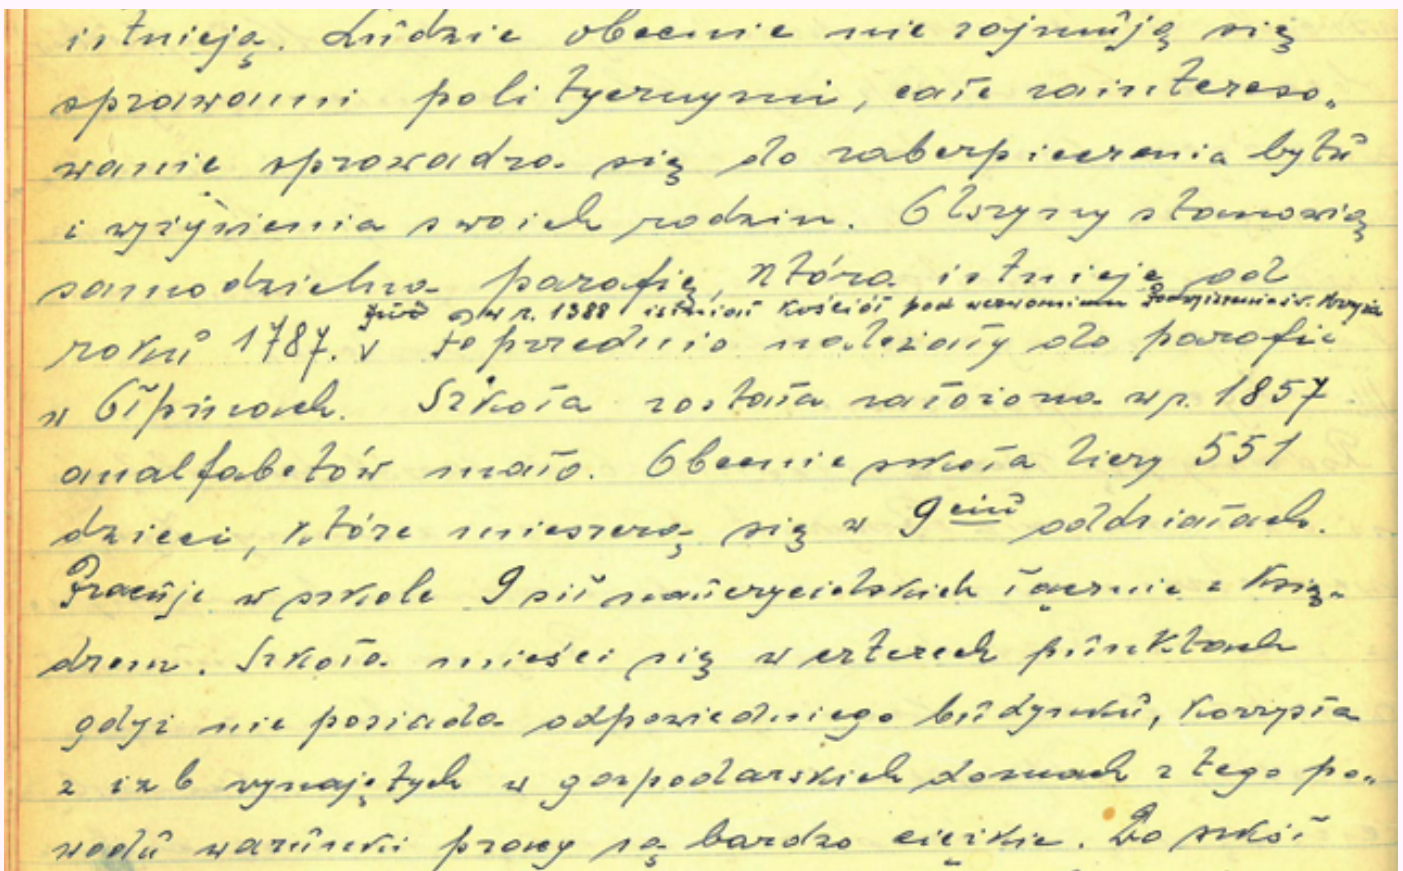 istnieją. Ludzie obecnie nie zajmują się
sprawami politycznymi, całe zaintereso„
wanie sprowadza się do zabezpieczenia bytu
i wyżywienia swoich rodzin. Olszyny stanowią
samodzielną parafię, która istnieje od
w r. 1388 istniał Kościół pod wezwaniem Podwyższenia św. Krzyża
roku 1787. v Poprzednio należały do parafii
w Ołpinach. Szkoła została założona w r. 1857
analfabetów mało. Obecnie szkoła liczy 551
dzieci, które mieszczą się w 9ciu oddziałach.
Pracuje w szkole 9 sił nauczycielskich łącznie z Księ„
dzem. Szkoła mieści się w czterech punktach
gdyż nie posiada odpowiedniego budynku, korzysta
z izb wynajętych w gospodarskich domach z tego po„
wodu warunki pracy są bardzo ciężkie. Do szkół